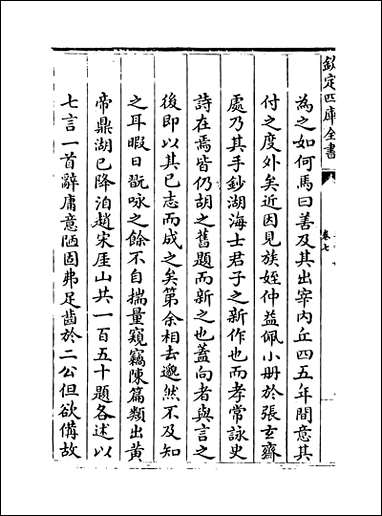 欽定四庫全書
卷七
為之如何馬曰善及其出宰内丘四五年間意其
付之度外矣近因見族姪仲益佩小册於張玄齋
處乃其手鈔湖海士君子之新作也而孝常詠史
詩在焉皆仍胡之舊題而新之也蓋向者與言之
後即以其已志而成之矣第余相去邈然不及知
之耳暇日翫咏之餘不自揣量窺竊陳篇類出黄
帝鼎湖已降泊趙宋厓山共一百五十題各述以
七言一首辭庸意陋固弗足齒於二公但欲備故